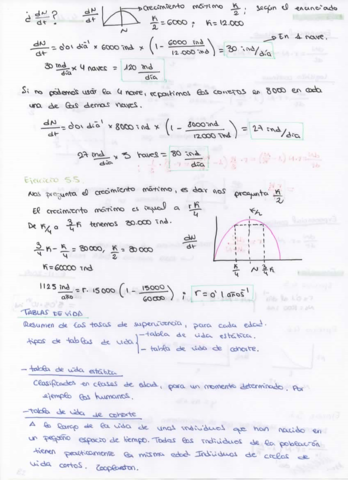 ¿ dN/dt ? dN/dt crecimiento máximo K/2; según el enunciado
N K/2 = 6000 ; K = 12.000
dN/dt = 0'01 día⁻¹ × 6000 ind × (1 - 6000 ind / 12.000 ind) = 30 ind/día → En 1 nave.
30 ind/día × 4 naves = 120 ind/día
Si no podemos usar la 4 nave, repartimos los conejos en 8000 en cada
una de las demás naves.
dN/dt = 0'01 día⁻¹ × 8000 ind × (1 - 8000 ind / 12000 ind) = 27 ind/día
27 ind/día × 3 naves = 80 ind/día
Ejercicio 5.5
Nos pregunta el crecimiento máximo, es decir nos pregunta K/2
El crecimiento máximo es igual a rK/4
De K/4 a 3/4K tenemos 30.000 ind.
3/4K - K/4 = 30000, K/2 = 30000
K = 60000 ind
dN/dt
K/4 N 3/4K
1125 ind/año = r · 15000 (1 - 15000/60000) ; r = 0'1 años⁻¹
TABLAS DE VIDA
Resumen de las tasas de supervivencia, para cada edad.
tipos de tablas de vida - tabla de vida estática.
- tabla de vida de cohorte.
- tabla de vida estática
Clasificados en clases de edad, para un momento determinado. Por
ejemplo los humanos.
- tabla de vida de cohorte
A lo largo de la vida de unos individuos que han nacido en
un pequeño espacio de tiempo. Todos los individuos de la población
tienen practicamente la misma edad. Individuos de ciclos de
vida cortos.